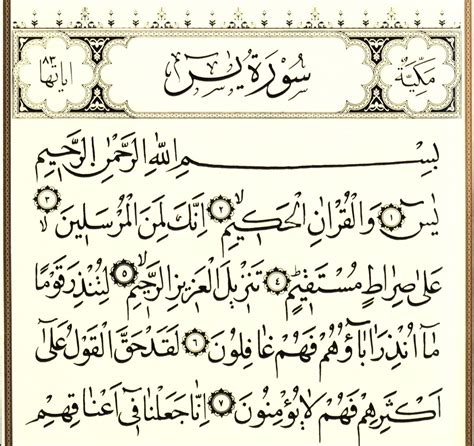 مكية
سُورَةُ يٰسٓ
اياتها ٨٣
بِسْمِ اللّٰهِ الرَّحْمٰنِ الرَّحِيمِ
يٰسٓ ﴿١﴾ وَالْقُرْاٰنِ الْحَكِيمِ ﴿٢﴾ اِنَّكَ لَمِنَ الْمُرْسَلِينَ ﴿٣﴾
عَلٰى صِرَاطٍ مُسْتَقِيمٍ ﴿٤﴾ تَنْزِيلَ الْعَزِيزِ الرَّحِيمِ ﴿٥﴾ لِتُنْذِرَ قَوْمًا
مَٓا اُنْذِرَ اٰبَٓاؤُهُمْ فَهُمْ غَافِلُونَ ﴿٦﴾ لَقَدْ حَقَّ الْقَوْلُ عَلٰٓى
اَكْثَرِهِمْ فَهُمْ لَا يُؤْمِنُونَ ﴿٧﴾ اِنَّا جَعَلْنَا فِٓي اَعْنَاقِهِمْ